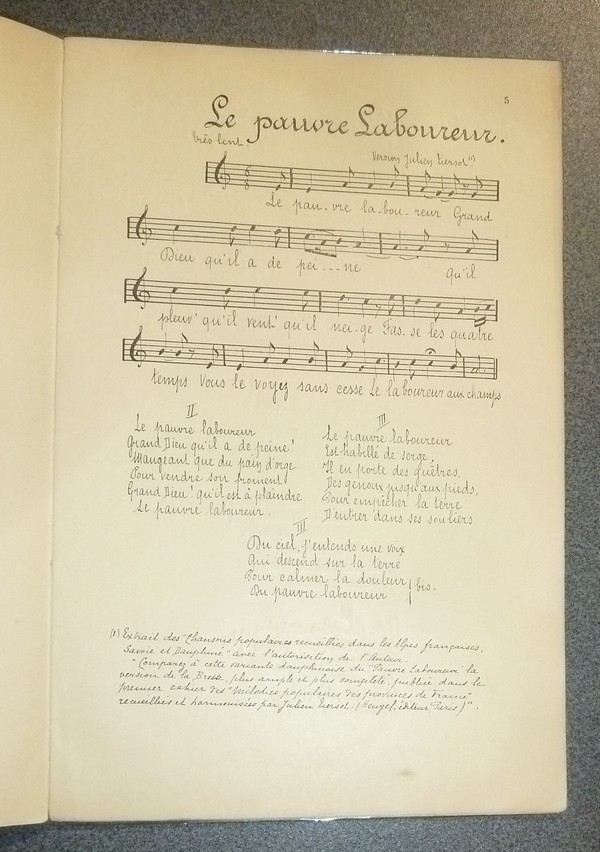 5
Le pauvre Laboureur.
Très lent
Version Julien Tiersot (1)
Le pau-vre la-bou-reur Grand
Dieu qu'il a de pei---ne qu'il
pleuv' qu'il vent' qu'il nei-ge Fas-se les quatre
temps Vous le voyez sans cesse Le laboureur aux champs
II
Le pauvre laboureur
Grand Dieu qu'il a de peine!
Mangeant que du pain d'orge
Pour vendre son froment
Grand Dieu! qu'il est à plaindre
Le pauvre laboureur.
III
Le pauvre laboureur
Est habillé de serge,
Il en porte des guêtres,
Des genoux jusqu'aux pieds,
Pour empêcher la terre
D'entrer dans ses souliers
III
Du ciel, j'entends une voix
Qui descend sur la terre
Pour calmer la douleur
Du pauvre laboureur
bis.
(1) Extrait des "Chansons populaires recueillies dans les Alpes françaises,
Savoie et Dauphiné" avec l'autorisation de l'Auteur.
"Comparez à cette variante dauphinoise du "Pauvre Laboureur" la
version de la Bresse, plus ample et plus complète, publiée dans le
premier cahier des "Mélodies populaires des provinces de France"
recueillies et harmonisées par Julien Tiersot. (Heugel, éditeur Paris)".